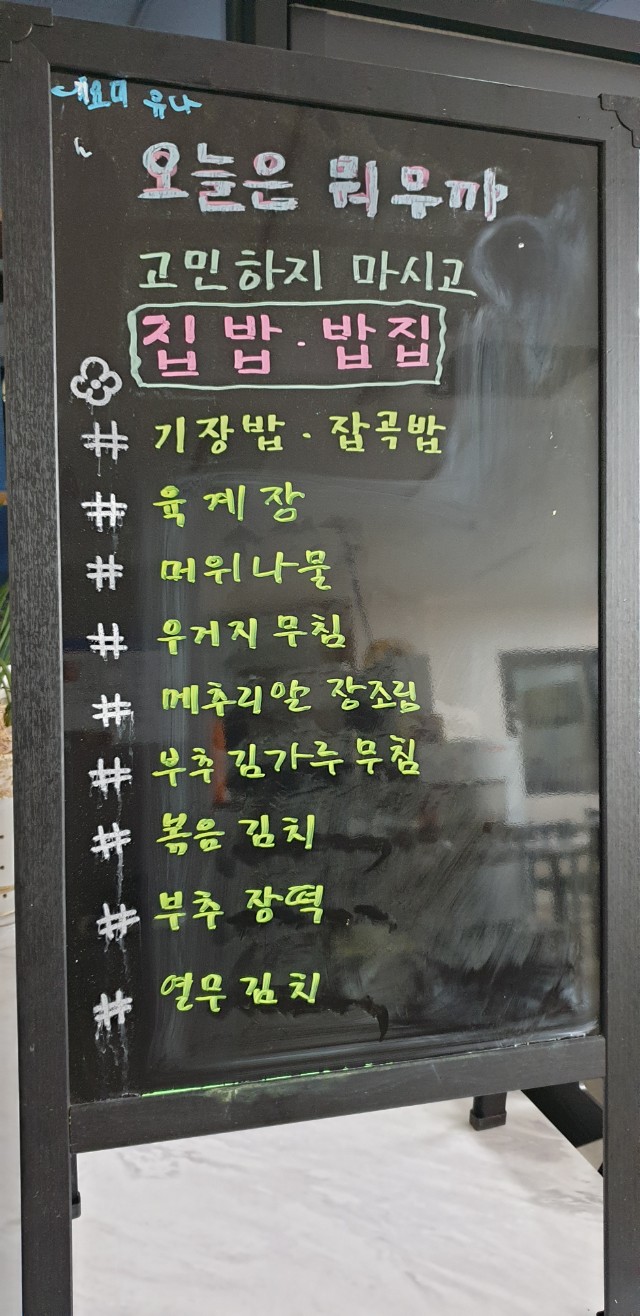 유나
오늘은 뭐무까
고민하지 마시고
집밥·밥집
# 기장밥·잡곡밥
# 육계장
# 머위나물
# 우거지무침
# 메추리알 장조림
# 부추김가루무침
# 볶음김치
# 부추 장떡
# 열무김치